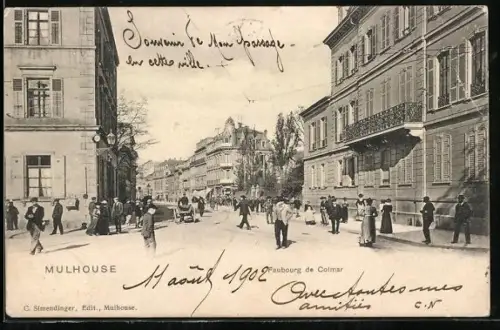 Souvenir de Mon passage
en cette ville
MULHOUSE
Faubourg de Colmar
11 août 1902
Avec toutes mes
amitiés C. N
G. Simendinger, Edit., Mulhouse.